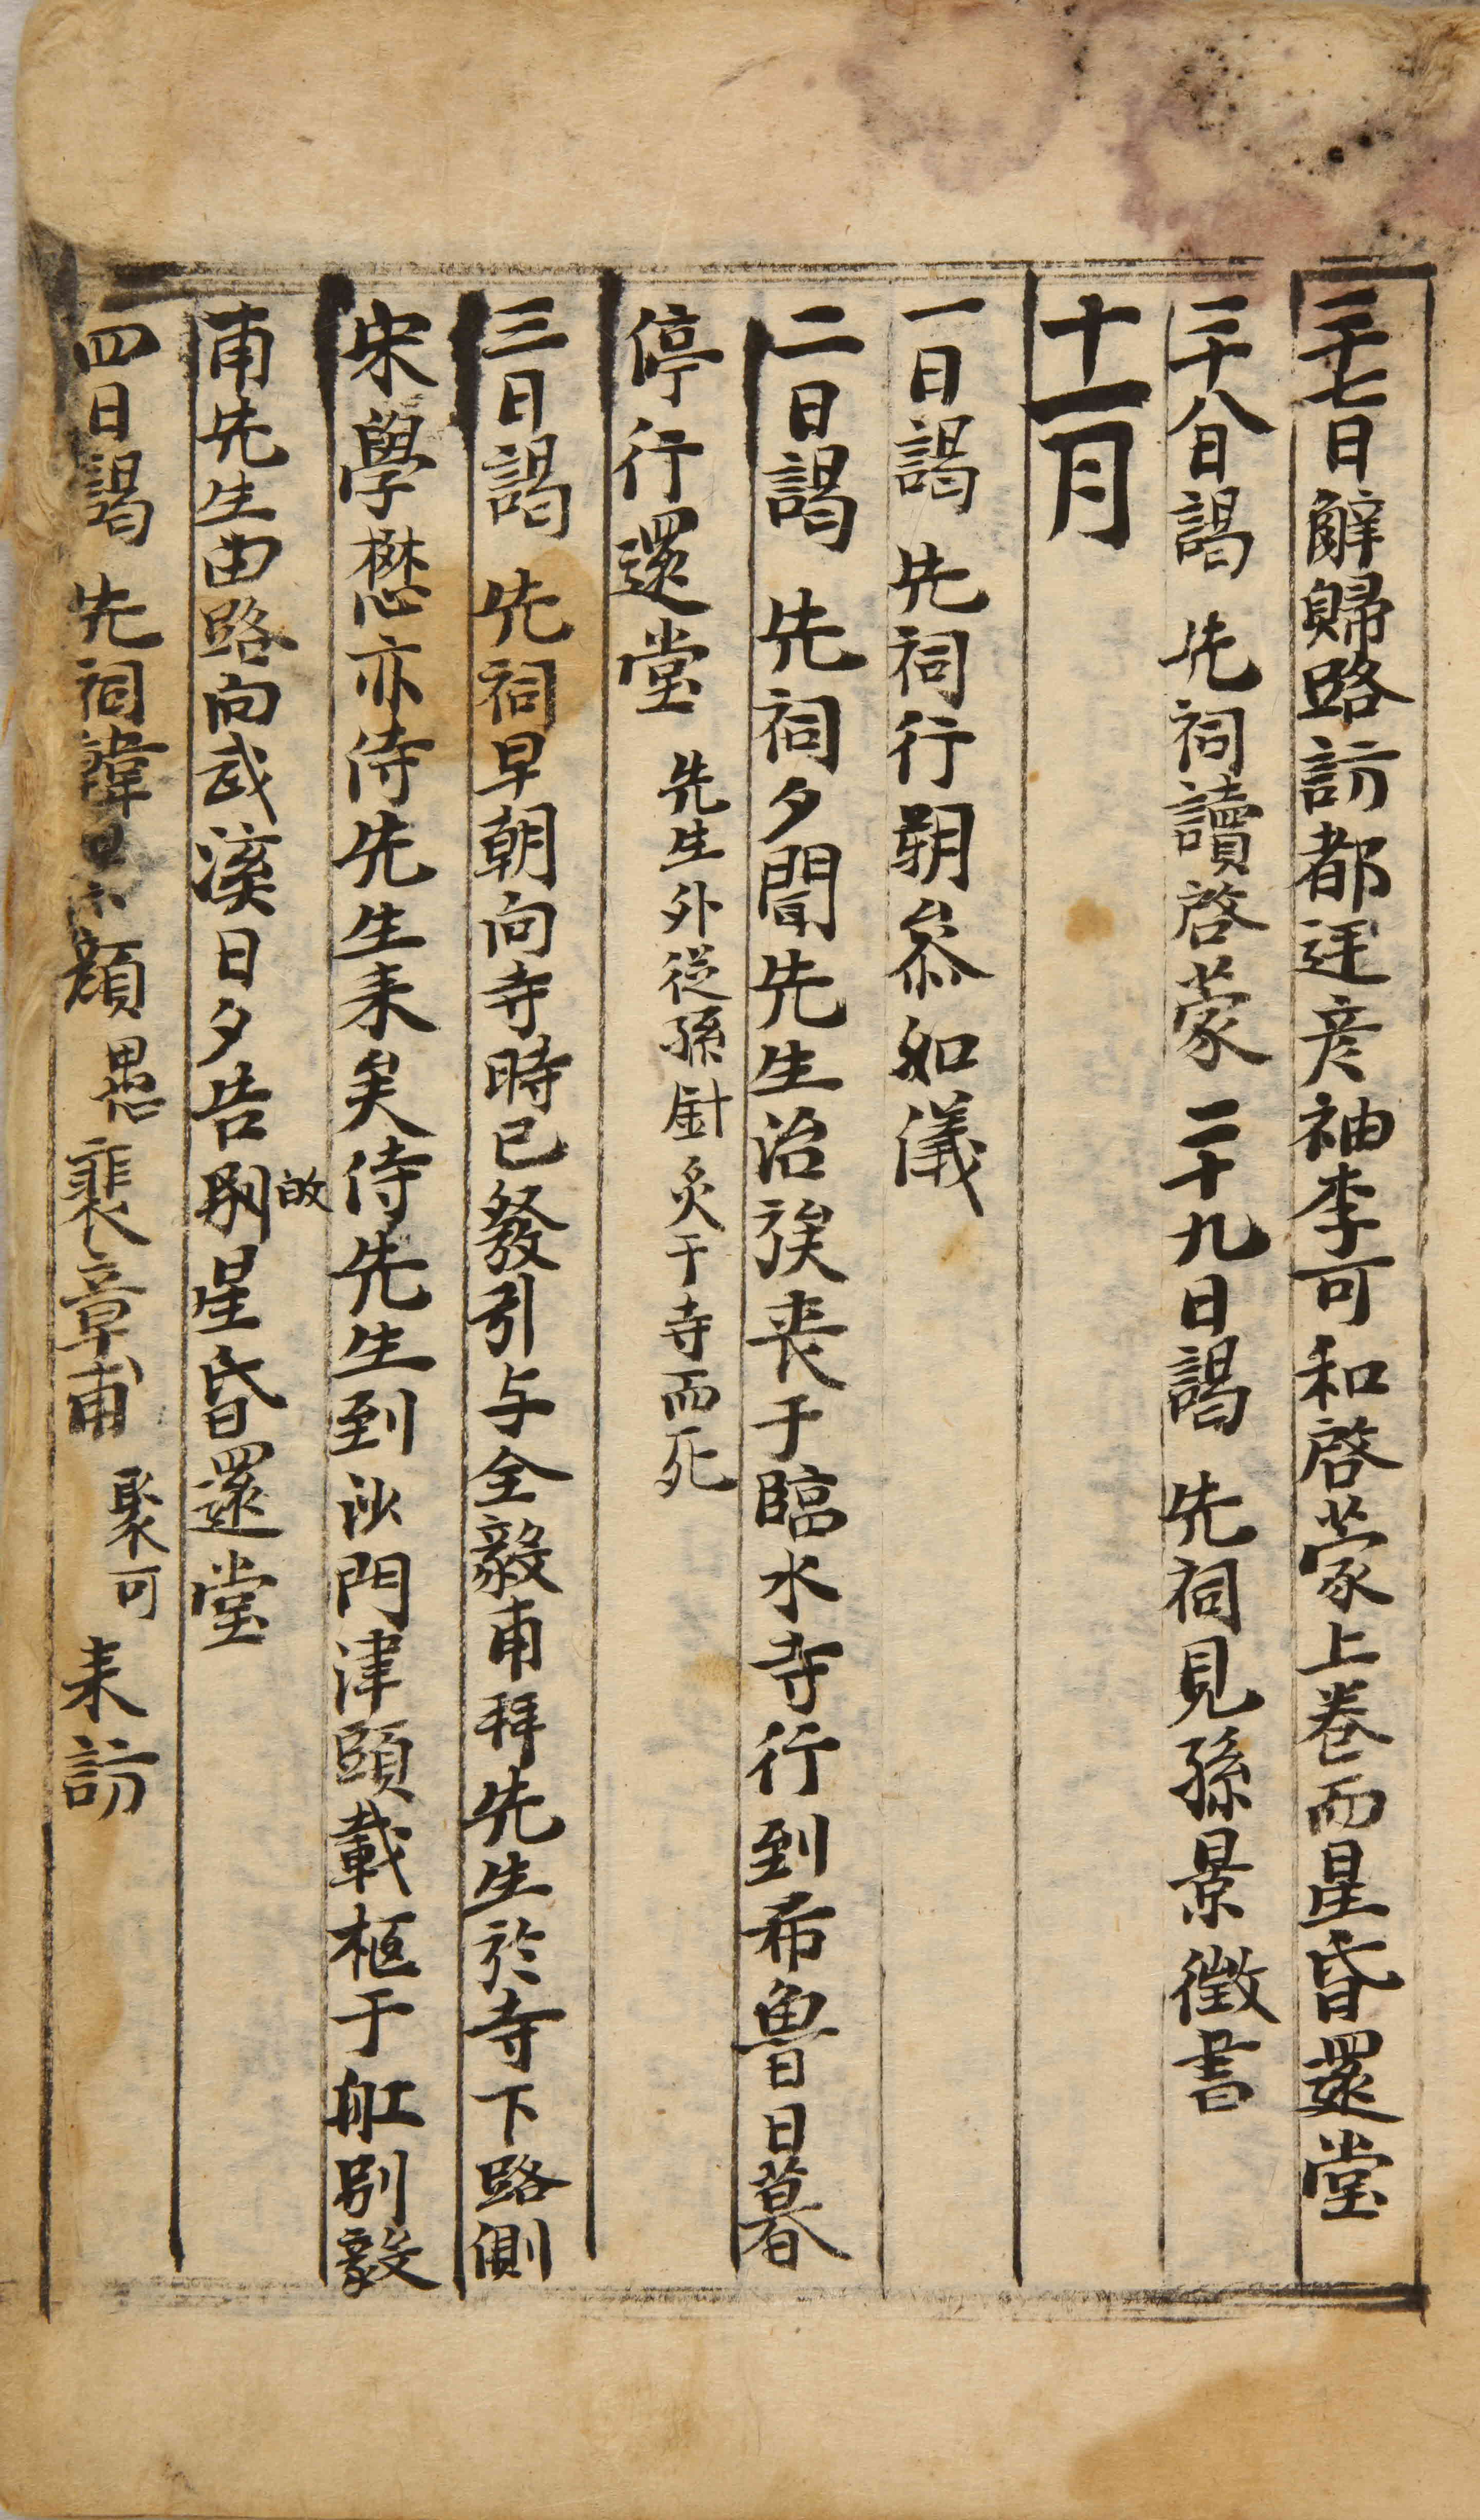 二十七日辭歸路訪都廷彦袖李可和啓蒙上卷而星昏還堂
二十八日謁 先祠讀啓蒙 二十九日謁 先祠見孫景徵書
十一月
一日謁 先祠行朔叅如儀
二日謁 先祠夕聞先生治族丧于臨水寺行到希魯日暮
停行還堂 先生外從孫針灸于寺而死
三日謁 先祠早朝向寺時已發引与全毅甫拜先生於寺下路側
宋學懋亦侍先生来矣侍先生到沙門津頤載柩于舡別毅
甫先生由路向武溪日夕告別故星昏還堂
四日謁 先祠諱日 顔愚 裴章甫 聚可 来訪